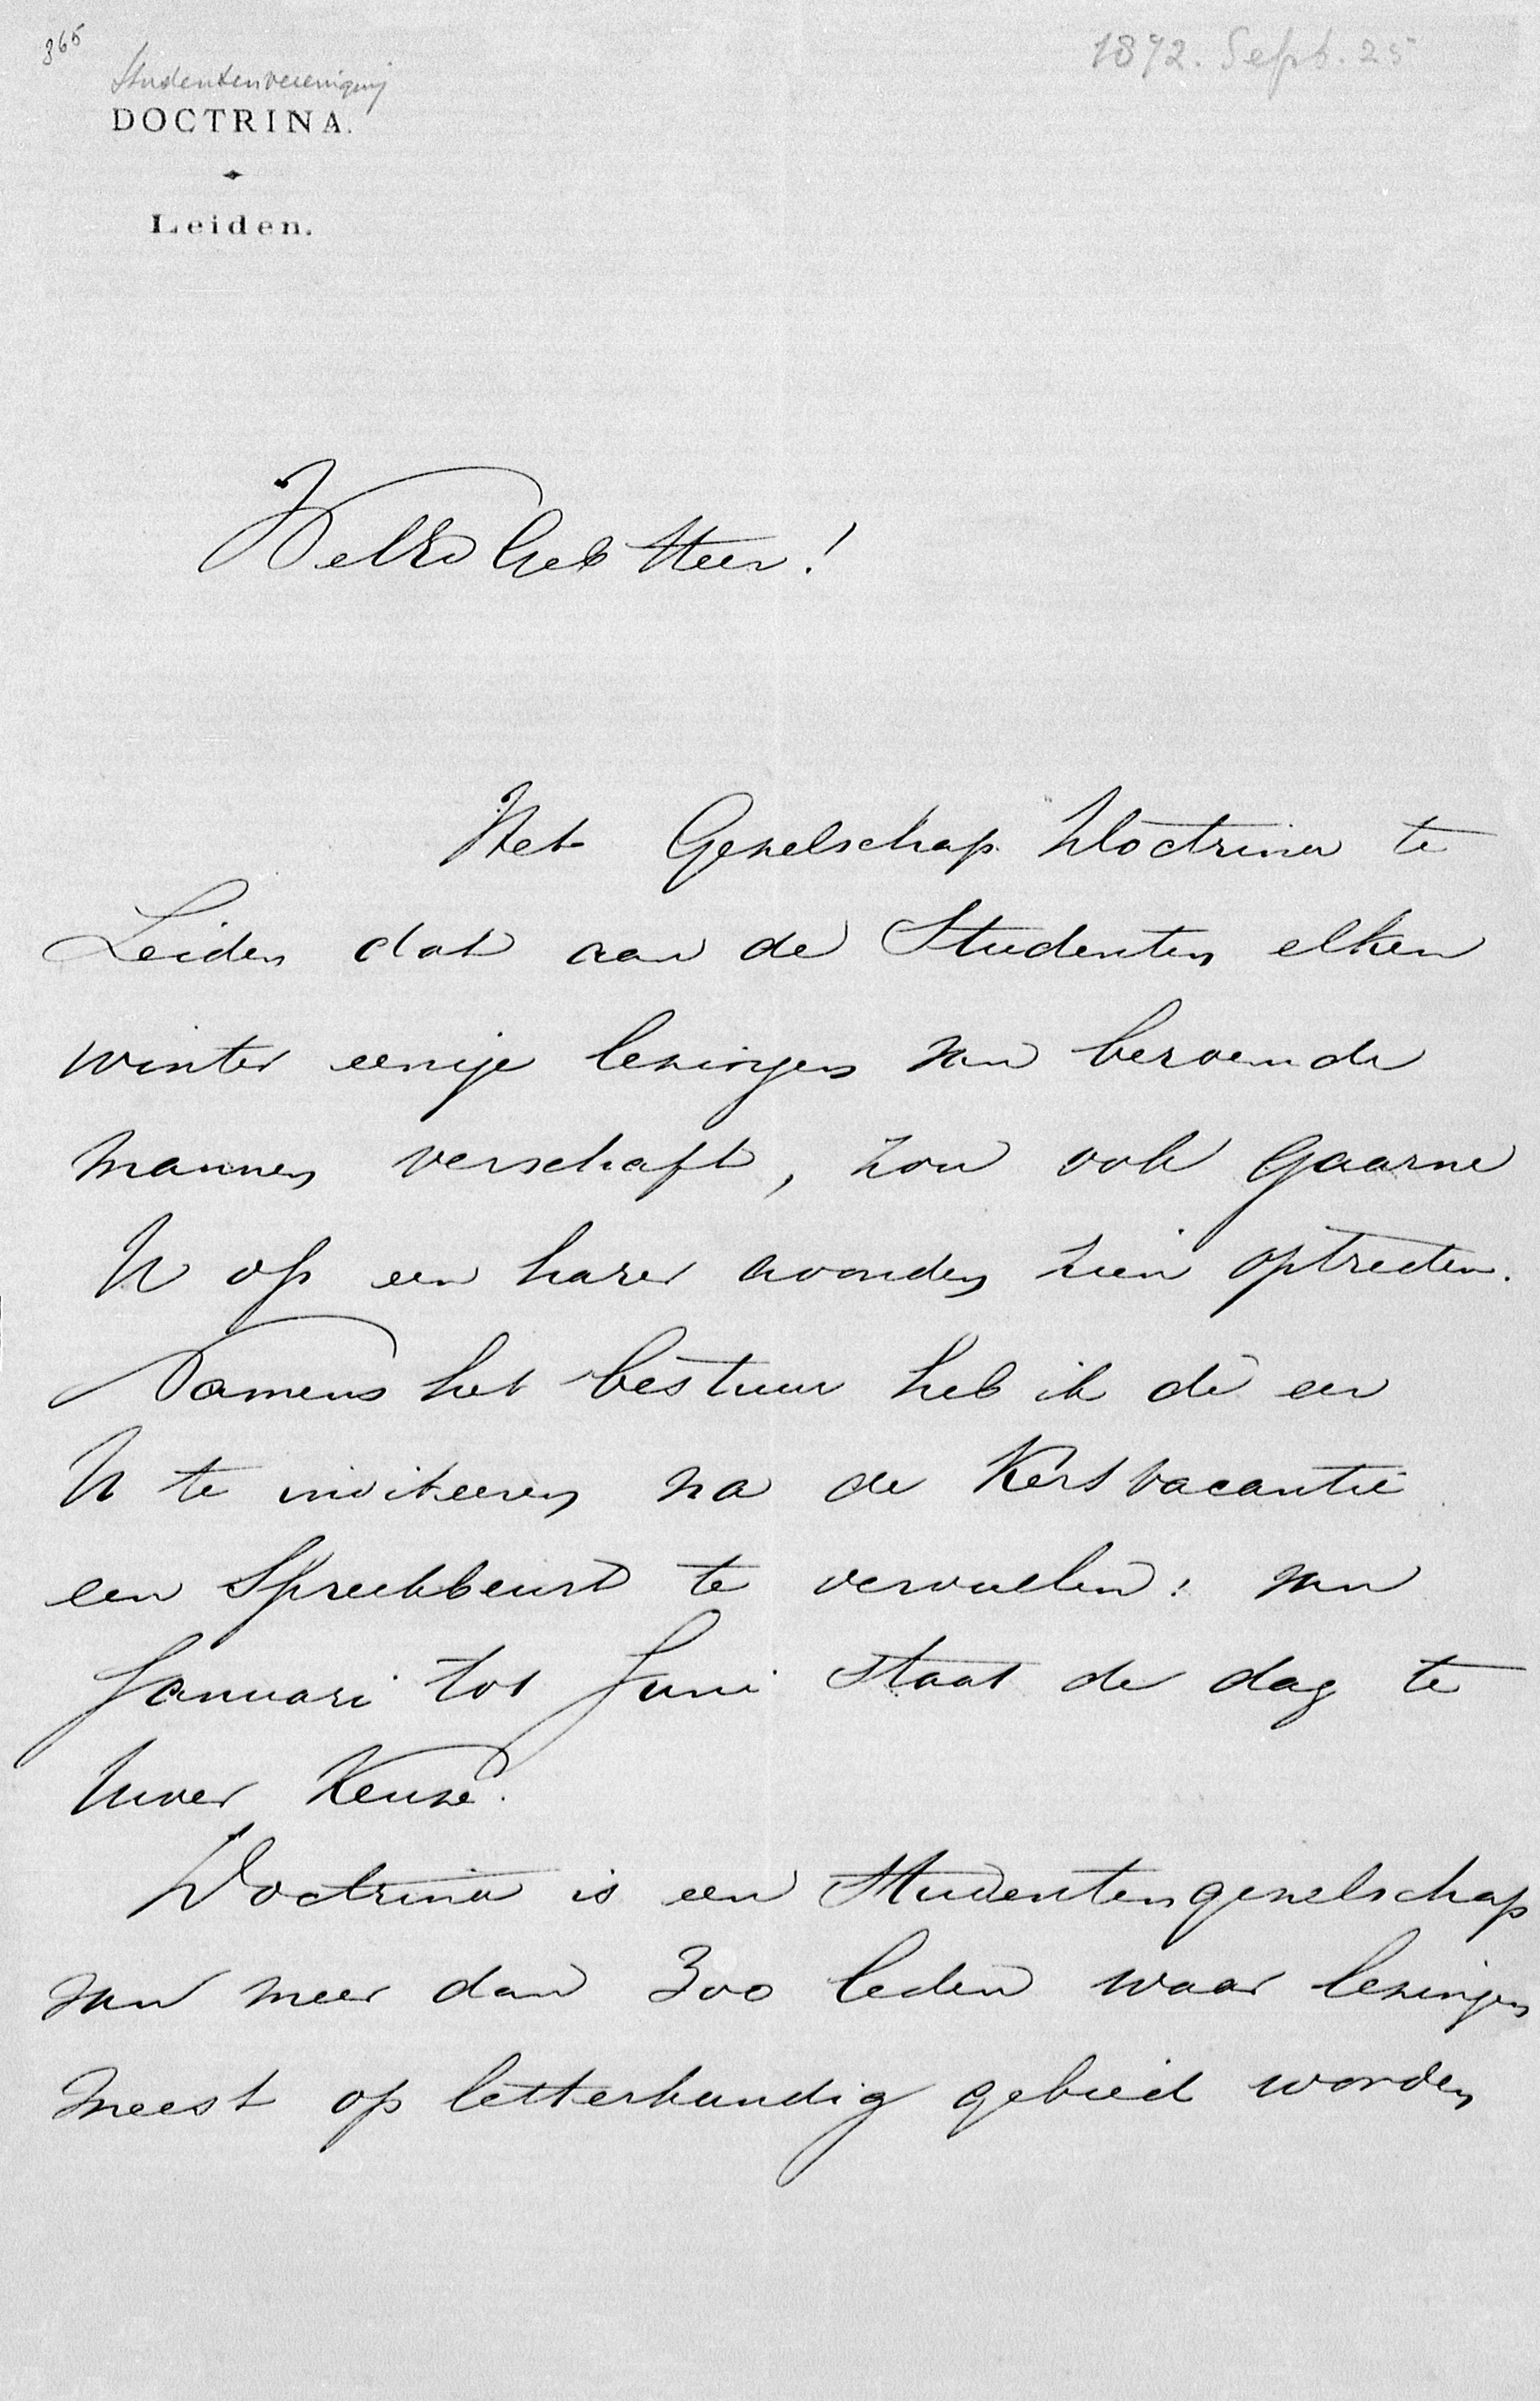 365
1892. Sept. 25
Studentenvereniging
DOCTRINA.
Leiden.
WelEd Geb Heer!
Het Gezelschap Doctrina te
Leiden dat aan de Studenten elken
winter eenige lezingen van beroemde
mannen verschaft, zou ook gaarne
U op een harer avonden zien optreden.
Namens het bestuur heb ik de eer
U te inviteeren na de Kersvacantie
een Spreekbeurt te vervullen: van
Januari tot Juni staat de dag te
Uwer Keuze.
Doctrina is een Studentengezelschap
van meer dan 300 leden waar lezingen
meest op letterkundig gebied worden